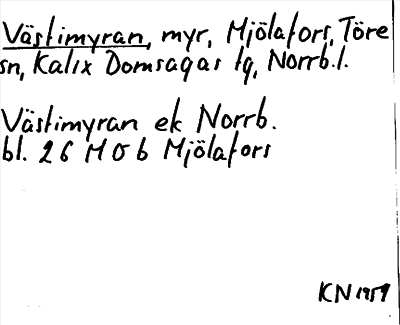 Västimyran, myr, Mjölafors, Töre
sn, Kalix Domsagas tg, Norrb.l.
Västimyran ek Norrb.
bl. 26 M 0 b Mjölafors
KN 1959